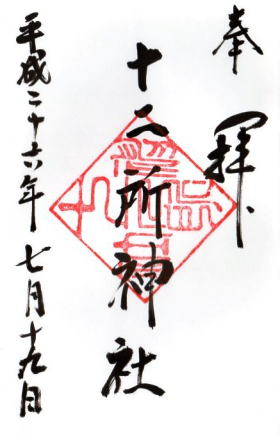 奉拝
十二所神社
平成二十六年七月十九日